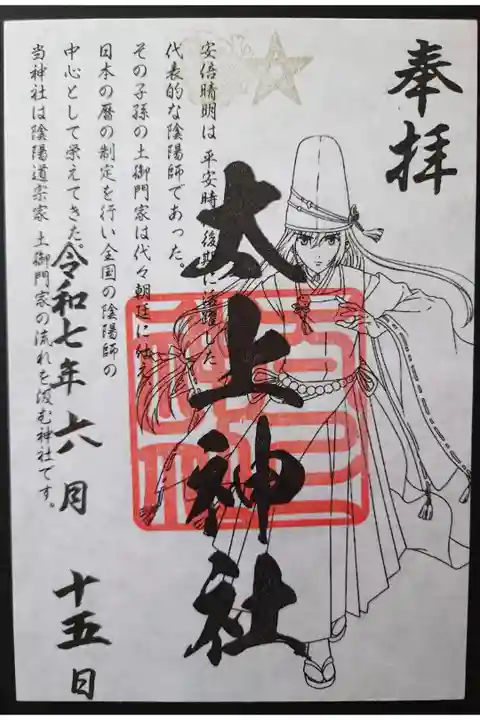 奉拝
太上神社
安倍晴明は 平安時代後期に活躍した
代表的な陰陽師であった。
その子孫の土御門家は代々朝廷に仕え
日本の暦の制定を行い全国の陰陽師の
中心として栄えてきた。
当神社は陰陽道宗家 土御門家の流れを汲む神社です。
令和七年 六月 十五日